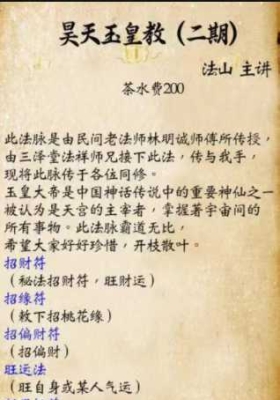 昊天玉皇教（二期）
法山 主讲
茶水费200
此法脉是由民间老法师林明诚师傅所传授，
由三泽堂法祥师兄接下此法，传与我手，
现将此脉传于各位同修。
玉皇大帝是中国神话传说中的重要神仙之一
被认为是天宫的主宰者，掌握著宇宙间的
所有事物。此法脉霸道无比，
希望大家好好珍惜，开枝散叶。
招财符
（秘法招财符，旺财运）
招缘符
（敕下招桃花缘）
招偏财符
（招偏财）
旺运法
（旺自身或某人气运）